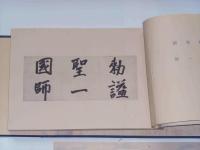 勅謚
聖一
國師